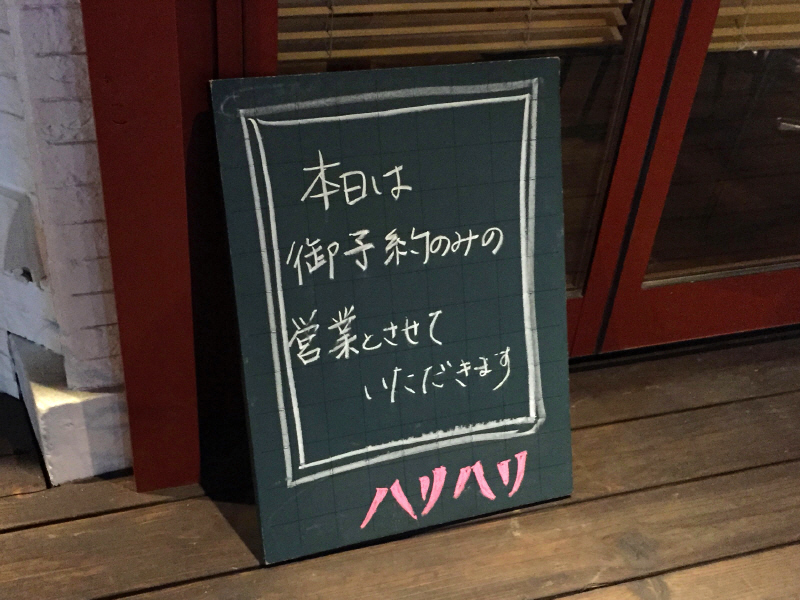 本日は
御予約のみの
営業とさせて
いただきます
ハリハリ